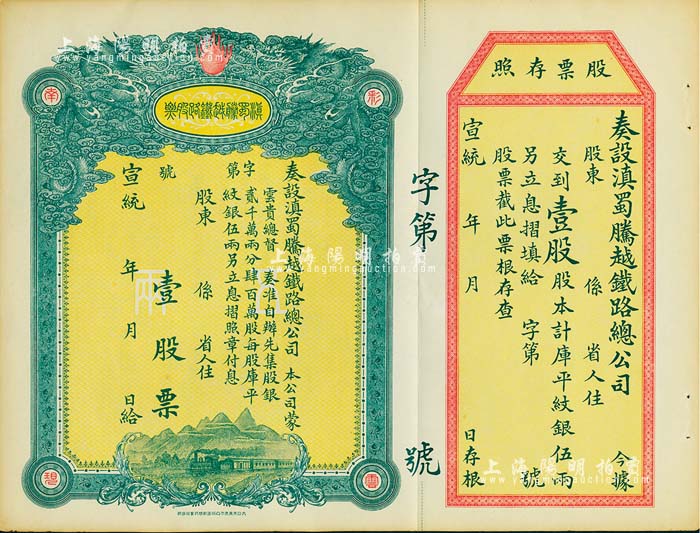 股票存照
奏設滇蜀騰越鐵路總公司 今據
股東 係 省人住
交到壹股股本計庫平紋銀伍兩
另立息摺填給 字第 號
股票截此票根存查
宣統 年 月 日存根
字第 號
滇蜀騰越鐵路股票
彩
南
奏設滇蜀騰越鐵路總公司 本公司蒙
雲貴總督 奏准自辦先集股銀
貳千萬兩分肆百萬股每股庫平
紋銀伍兩另立息摺照章付息
字第 號
股東 係 省人住
壹股票
宣統 年 月 日給
上海陽明拍賣
www.yangmingauction.com
上海陽明拍賣
www.yangmingauction.com
上海陽明拍賣
www.yangmingauction.com
上海陽明拍賣
www.yangmingauction.com